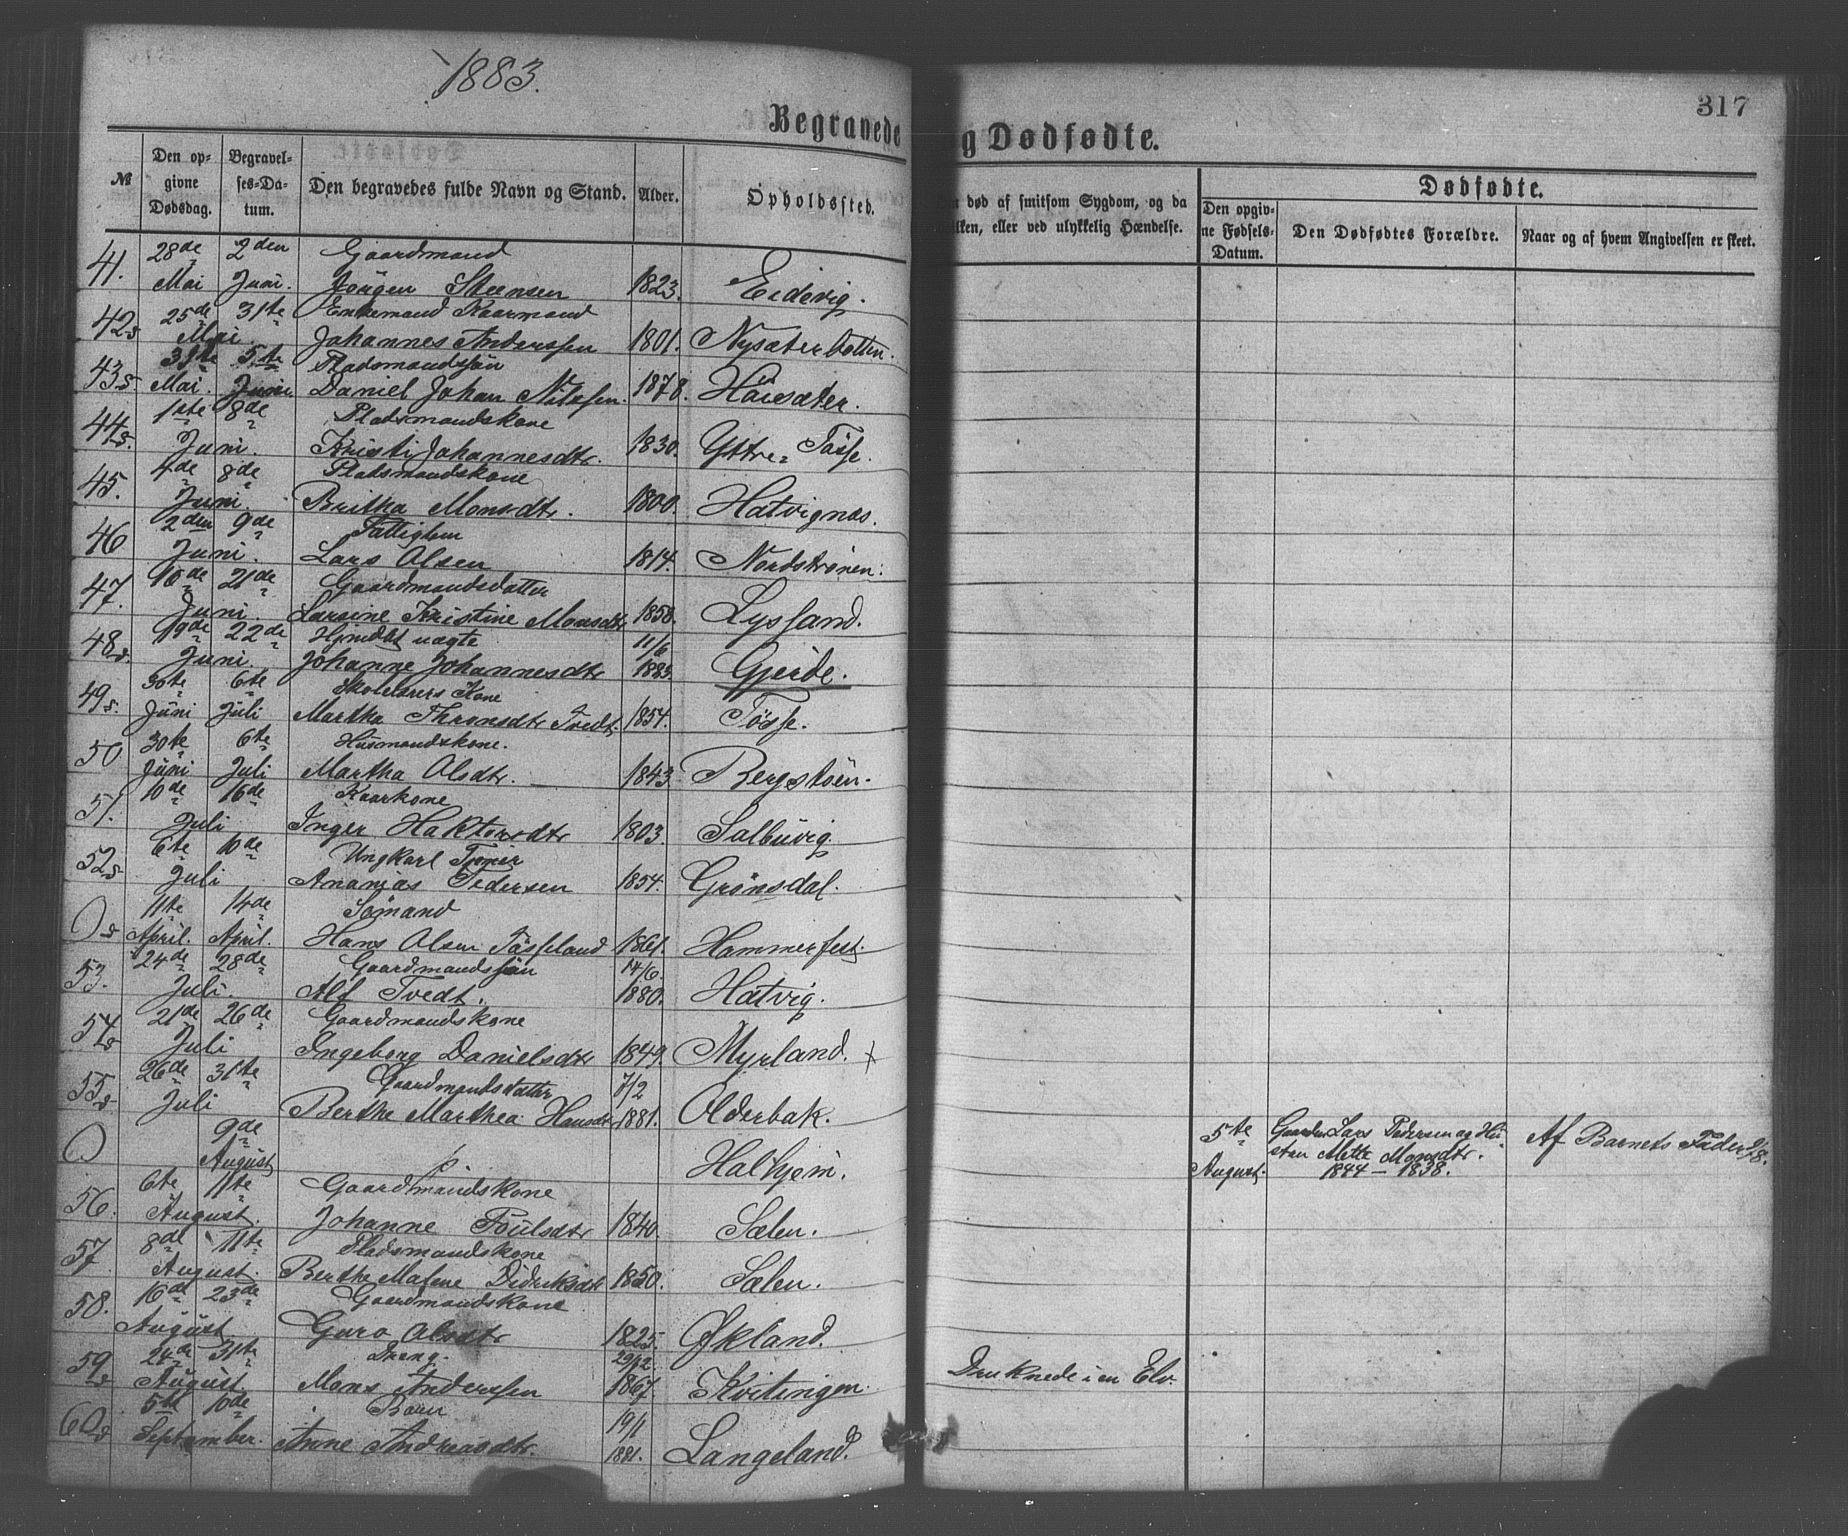 1883.
317
Begravede
g Dødfødte.
№
Den opgivne Dødsdag.
Begravelses-Datum.
Den begravedes fulde Navn og Stand.
Alder.
Opholdssted.
død af smitsom Sygdom, og da
ilken, eller ved ulykkelig Hændelse.
Dødfødte.
Den opgivne Fødsels-Datum.
Den Dødfødtes Forældre.
Naar og af hvem Angivelsen er skeet.
41. 28de Mai 2den Juni. Gaardmand
Jörgen Steensen 1823. Eidsvig.
42 s 25de Mai 31te Enkemand Kaarmand
Johannes Anderssen 1801. Nysæterbotten.
43 s. 31te Mai. 5te Juni Pladsmandssön
Daniel Johan Nilssen. 1878. Höisæter.
44 s. 1ste 8de Juni. Pladsmandskone
Kristi Johannesdtr. 1830. Yttre Tösse.
45. 4de 8de Juni. Pladsmandskone
Britha Monsdtr. 1800. Hatvignæs.
46 2den 9de Juni. Fattiglem
Lars Olsen 1814. Nordströnen.
47. 16de 21de Juni Gaardmandsdatter
Larsine Kristine Monsdtr 1858. Lyssand.
48 s. 19de 22de Juni. Hjmdbt uægte 11/6
Johanne Johannesdtr 1883. Gjerde.
49 s. 30te Juni 6te Juli Skolelærers Kone
Martha Thronsdtr Tvedt 1854. Tösse.
50 30te Juni 6te Juli Husmandskone.
Martha Olsdtr. 1843 Bergstöen.
51. 10de 16de Juli Kaarkone
Inger Haktorsdtr 1803. Salbuvig.
52 s 6te 10de Juli Ungkarl
Ananias Pedersen 1854. Grönsdal.
0 s 11te April. 14de April. Sömand
Hans Olsen Tösseland 1861. Hammerfest
53. 24de 28de Juli. Gaardmandssön 14/6.
Alf Tvedt. 1880. Hatvig.
54 s 21de 26de Juli Gaardmandskone
Ingeborg Danielsdtr 1849. Myrland.
55 s 26de 31te Juli Gaardmandsdatter 7/2
Berthe Marthea Hansdtr 1881. Olderbak.
0 9de August Halhjem.
5te August. Gaardm Lars Pedersen og Hustru Mette Monsdtr. 1844 – 1838. Af Barnets Fader 9/8.
56. 6te 11te August. Gaardmandskone
Johanne Poulsdtr 1840. Sælen.
57. 8de 11te August. Pladsmandskone
Berthe Malene Didriksdtr 1850. Sælen.
58. 16de 23de August Gaardmandskone
Guro Olsdtr 1825. Økland.
59 s 24de 31te August Dreng. 29/12.
Mons Anderssen 1867 Kvitingen. Druknede i en Elv.
60 s 5te 10de September. Barn 19/1
Anne Andreasdtr. 1881. Langeland.